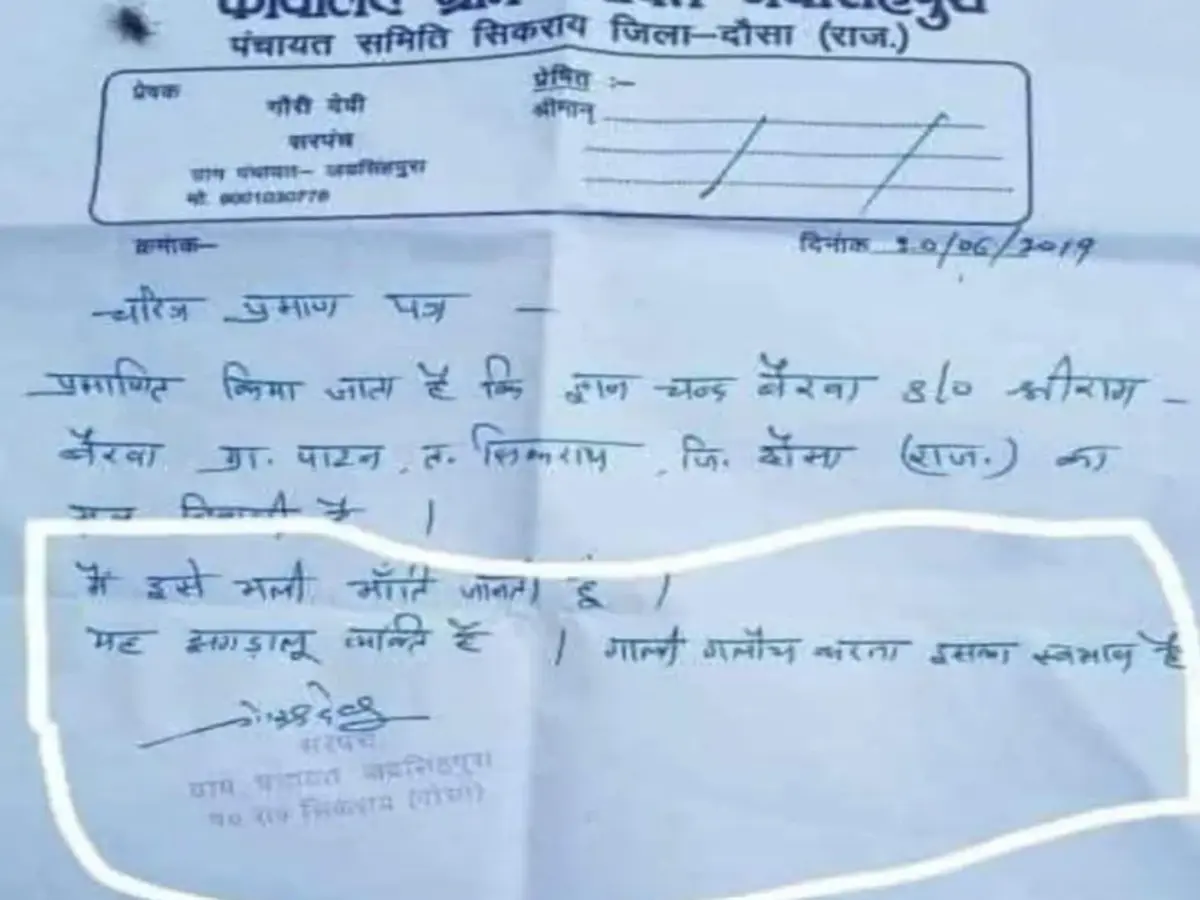 कार्यालय ग्राम पंचायत जयसिंहपुरा
पंचायत समिति सिकराय जिला-दौसा (राज.)
प्रेषक
गौरी देवी
सरपंच
ग्राम पंचायत- जयसिंहपुरा
मो.
प्रेषित :-
श्रीमान्
क्रमांक-
दिनांक 10/06/2019
चरित्र प्रमाण पत्र -
प्रमाणित किया जाता है कि ज्ञान चन्द बैरवा S/o श्रीराम -
बैरवा ग्रा. पाटन, त. सिकराय, जि. दौसा (राज.) का
मूल निवासी है ।
मैं इसे भली भाँति जानती हूं ।
यह झगड़ालू व्यक्ति है । गाली गलौच करना इसका स्वभाव है
सरपंच
ग्राम पंचायत जयसिंहपुरा
पं० स० सिकराय (दौसा)